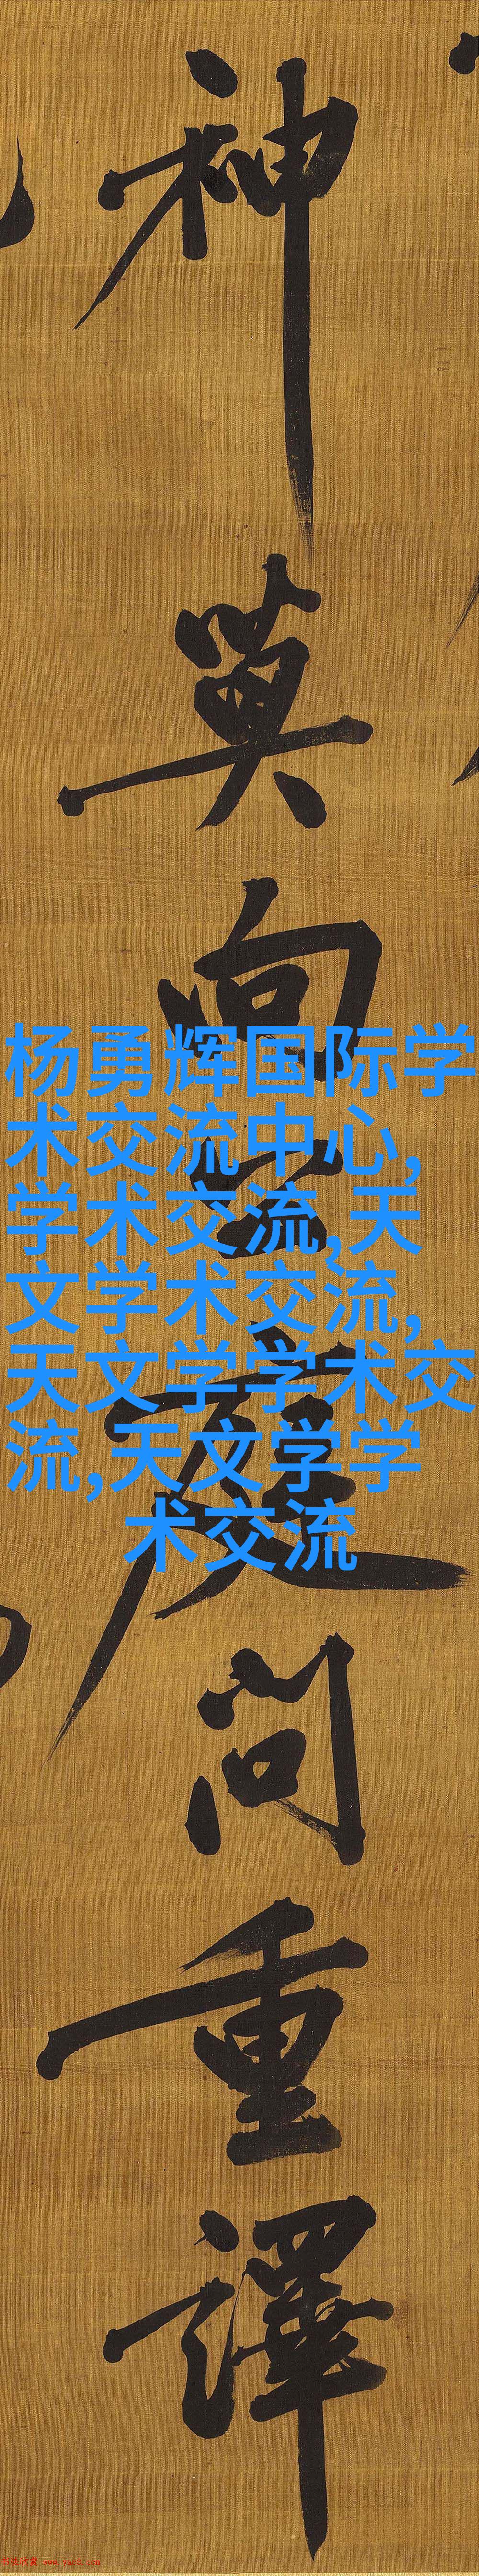 神英向玉庭問重譯
杨勇辉国际学
术交流中心,
学术交流,天
文学术交流,
天文学学术交
流,天文学学
术交流